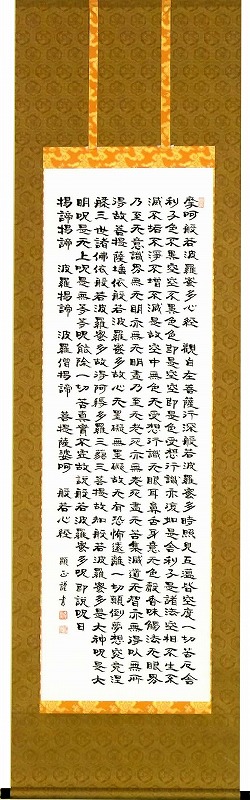 摩呵般若波羅蜜多心経　観自在菩薩行深般若波羅蜜多時照見五蘊皆空度一切苦厄舎
利子色不異空空不異色色即是空空即是色受想行識亦復如是舎利子是諸法空相不生不
滅不垢不浄不増不減是故空中無色无受想行識无眼耳鼻舌身意无色声香味觸法无眼界
乃至无意識界无無明亦無无明盡乃至无老死亦無老死盡无苦集滅道无智亦無得以無所
得故菩提薩埵依般若波羅蜜多故心无罣礙無罣礙故无有恐怖遠離一切顛倒夢想究竟涅
槃三世諸佛依般若波羅蜜多故得阿耨多羅三藐三菩提故知般若波羅蜜多是大神呪是大
明呪是无上呪是無等等呪能除一切苦真實不虚故説般若波羅蜜多呪即説呪曰
掲諦掲諦　波羅掲諦　波羅僧掲諦　菩提薩婆呵　般若心経
書